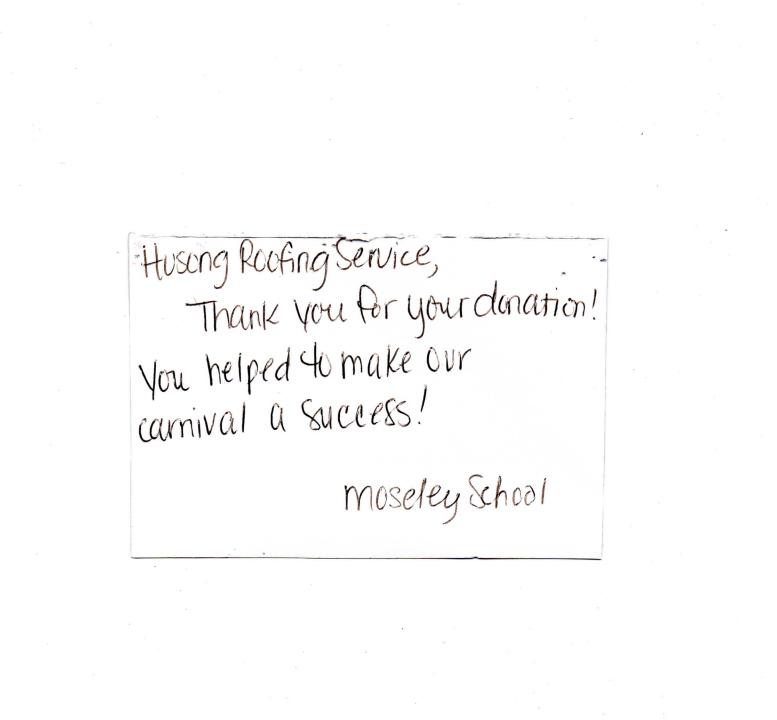 Husong Roofing Service,
Thank you for your donation!
You helped to make our
carnival a success!
Moseley School